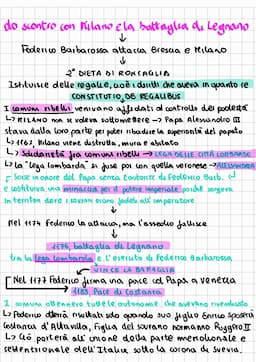 do scontro con Milano e la battaglia di Legnano
Federico Barbarossa attacca Brescia e Milano
2° DIETA DI RONCAGLIA
Istituisce delle regalie, cioè i diritti che aveva in quanto re
CONSTITUTIO DE REGALIBUS
I comuni ribelli venivano affidati al controllo del podestà
↳ MILANO non si voleva sottomettere → Papa Alessandro III
stava dalla loro parte per poter ribadire la superiorità del papato
↳ 1162, Milano viene distrutta, mura e abitato
↳ Solidarietà fra comuni ribelli → LEGA DELLE CITTÀ LOMBARDE
↳ la "lega lombarda" si fuse poi con quella veronese → ALESSANDRIA
in onore del Papa contro Federico Barb.
e costituiva una minaccia per il potere imperiale poiché sorgeva
in territori dove i sovrani erano fedeli all'imperatore
Nel 1174 Federico la attacca, ma l'assedio fallisce
1176, battaglia di Legnano
tra la Lega Lombarda e l'esercito di Federico Barbarossa
VINCE LA BATTAGLIA
Nel 1177 Federico firma una pace col Papa a Venezia
1183, Pace di Costanza
I comuni ottennero tutte le autonomie che avevano rivendicato
↳ Federico otterrà risultati solo quando suo figlio Enrico sposerà
Costanza d'Altavilla, figlia del sovrano normanno Ruggero II
↳ Ciò porterà all'unione della parte meridionale e
settentrionale dell'Italia sotto la corona di Svevia.